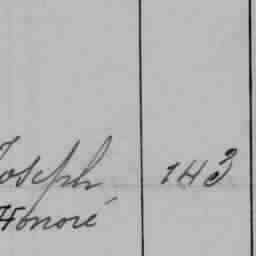 Joseph 143
Honoré